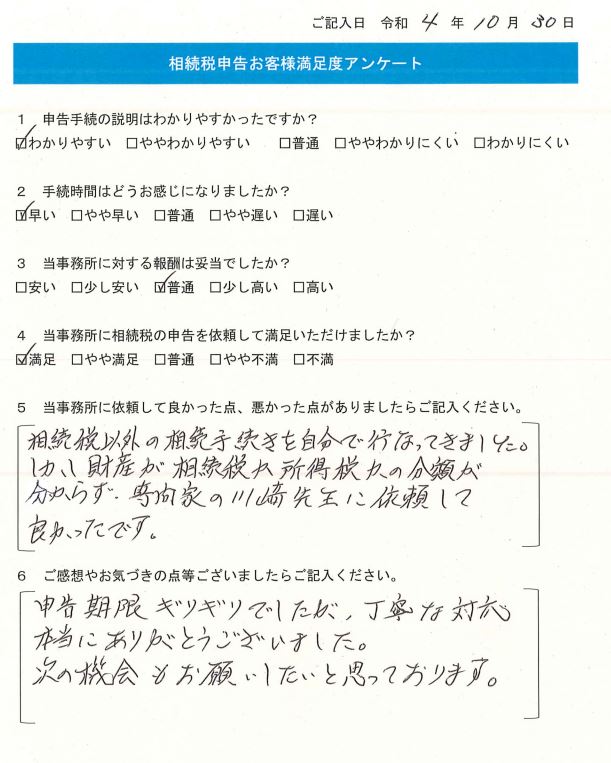 ご記入日 令和 4 年 10 月 30 日
相続税申告お客様満足度アンケート
1 申告手続の説明はわかりやすかったですか？
☑わかりやすい □ややわかりやすい □普通 □ややわかりにくい □わかりにくい
2 手続時間はどうお感じになりましたか？
☑早い □やや早い □普通 □やや遅い □遅い
3 当事務所に対する報酬は妥当でしたか？
□安い □少し安い ☑普通 □少し高い □高い
4 当事務所に相続税の申告を依頼して満足いただけましたか？
☑満足 □やや満足 □普通 □やや不満 □不満
5 当事務所に依頼して良かった点、悪かった点がありましたらご記入ください。
相続税以外の相続手続きを自分で行なってきました。
しかし財産が相続税か所得税かの分類が
分からず、専門家の川崎先生に依頼して
良かったです。
6 ご感想やお気づきの点等ございましたらご記入ください。
申告期限ギリギリでしたが、丁寧な対応
本当にありがとうございました。
次の機会もお願いしたいと思っております。